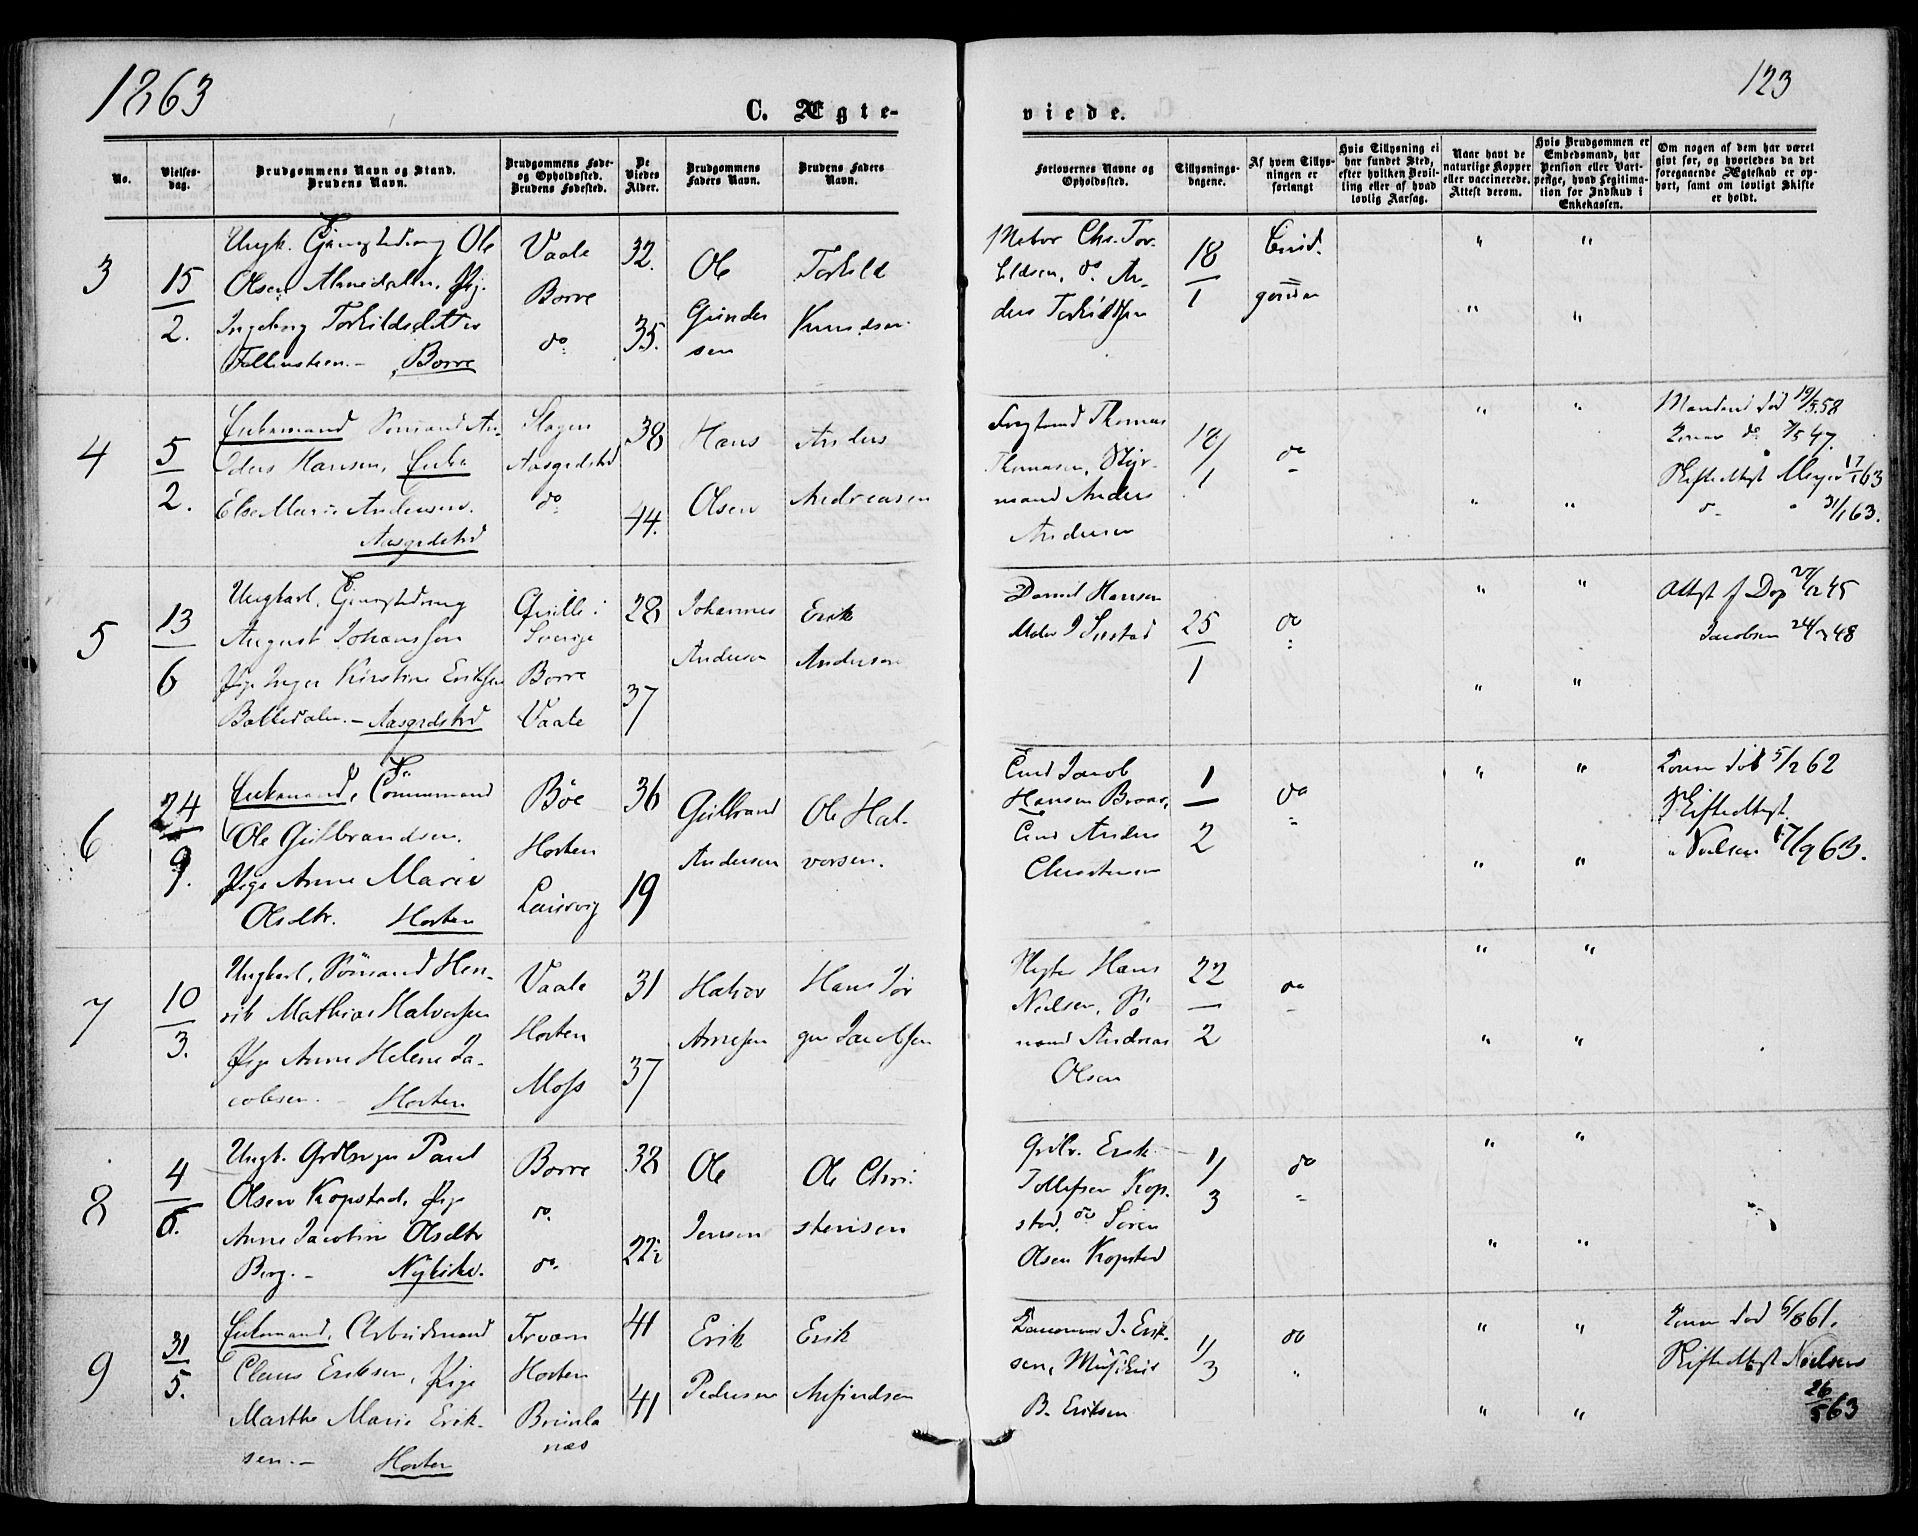 1863
123
C. Ægte-
viede.
No.
Vielses-
dag.
Brudgommens Navn og Stand.
Brudens Navn.
Brudgommens Føde-
og Opholdssted.
Brudens Fødested.
De
Viedes
Alder.
Brudgommens
Faders Navn.
Brudens Faders
Navn.
Forlovernes Navne og
Opholdssted.
Tillysnings-
dagene.
Af hvem Tillys-
ningen er
forlangt
Hvis Tillysning ei
har fundet Sted,
efter hvilken Bevil-
ling eller af hvad
lovlig Aarsag.
Naar havt de
naturlige Kopper
eller vaccinerede.
Attest derom.
Hvis Brudgommen er
Embedsmand, har
Pension eller Vart-
penge, hvad Legitima-
tion for Indskud i
Enkekassen.
Om nogen af dem har været
givt før, og hvorledes da det
foregaaende Ægteskab er op-
hørt, samt om lovligt Skifte
er holdt.
3
15/2.
Ungk. Ole
Olsen
Ingeborg Torkildsdatter
Borre
Vaale
Borre
do
32.
35.
Ole
Gunder
sen
Torkild
Knudsen
Chr. Tor-
kildsen, do An-
ders Torkildssen
18/1
" "
" "
4
5/2.
Enkemand Sømand An-
ders Hansen, Enke
Else Marie Andersen.
Aasgrdstrd
Slagen
Aasgrdstrd
do
38
44.
Hans
Olsen
Anders
Andreasen
Thomas
Thomasen, Styr-
mand Anders
Andersen
18/1
do
" "
" "
Manden død 19/5 58
Konen do 7/5 47.
Skifteattest Meyer 17/1 63
31/1 63.
5
13/6
Ungkarl,
August Johanssen
Pige Inger Kirstine Eriksen
Bakkedalen. - Aasgrdstrd
Qville i
Sverige
Borre
Vaale
28
37
Johannes
Andersen
Erik
Andersen
Daniel Hansen
25/1
do
" "
" "
Attest f Dop 27/12 45
Jacobsen 24/3 48
6
24/9.
Enkemand,
Ole Gulbrandsen.
Pige Anne Marie
Olsdtr. Horten
Bøe
Horten
Laurvig
36
19
Gulbrand
Andersen
Ole Hal-
vorsen.
Jacob
Hansen
Anders
Christensen
1/2
do
" "
" "
Konen død 5/2 62
Skifteattest.
Nielsen 17/9 63.
7
10/3.
Ungkarl, Sømand Hen-
rik Mathias Halvorsen
Pige Anne Helene Ja-
cobsen. - Horten
Vaale
Horten
Moss
31
37
Halvor
Arnesen
Hans Jør
gen Jacobsen
Hans
Nielsen, Sø
mand Andreas
Olsen
22/2
do
" "
" "
8
4/6.
Ungk. Paul
Olsen Kopstad, Pige
Anne Jacobine Olsdtr
Berg. - Nykirke.
Borre
do.
do.
38
22½
Ole
Jensen
Ole Chri-
stensen
Erik
Tollefsen Kop-
stad, do Søren
Olsen Kopstad
1/3
do
" "
" "
9
31/5.
Enkemand, Arbeidsmand
Claus Eriksen, Pige
Marthe Marie Erik-
sen. - Horten
Horten
Brunla
næs
41
41
Erik
Pedersen
Erik
J. Erik-
sen,
B. Eriksen
1/3
do
" "
" "
Konen død 6/8 61.
Skifteattest Nielsen
26/5 63